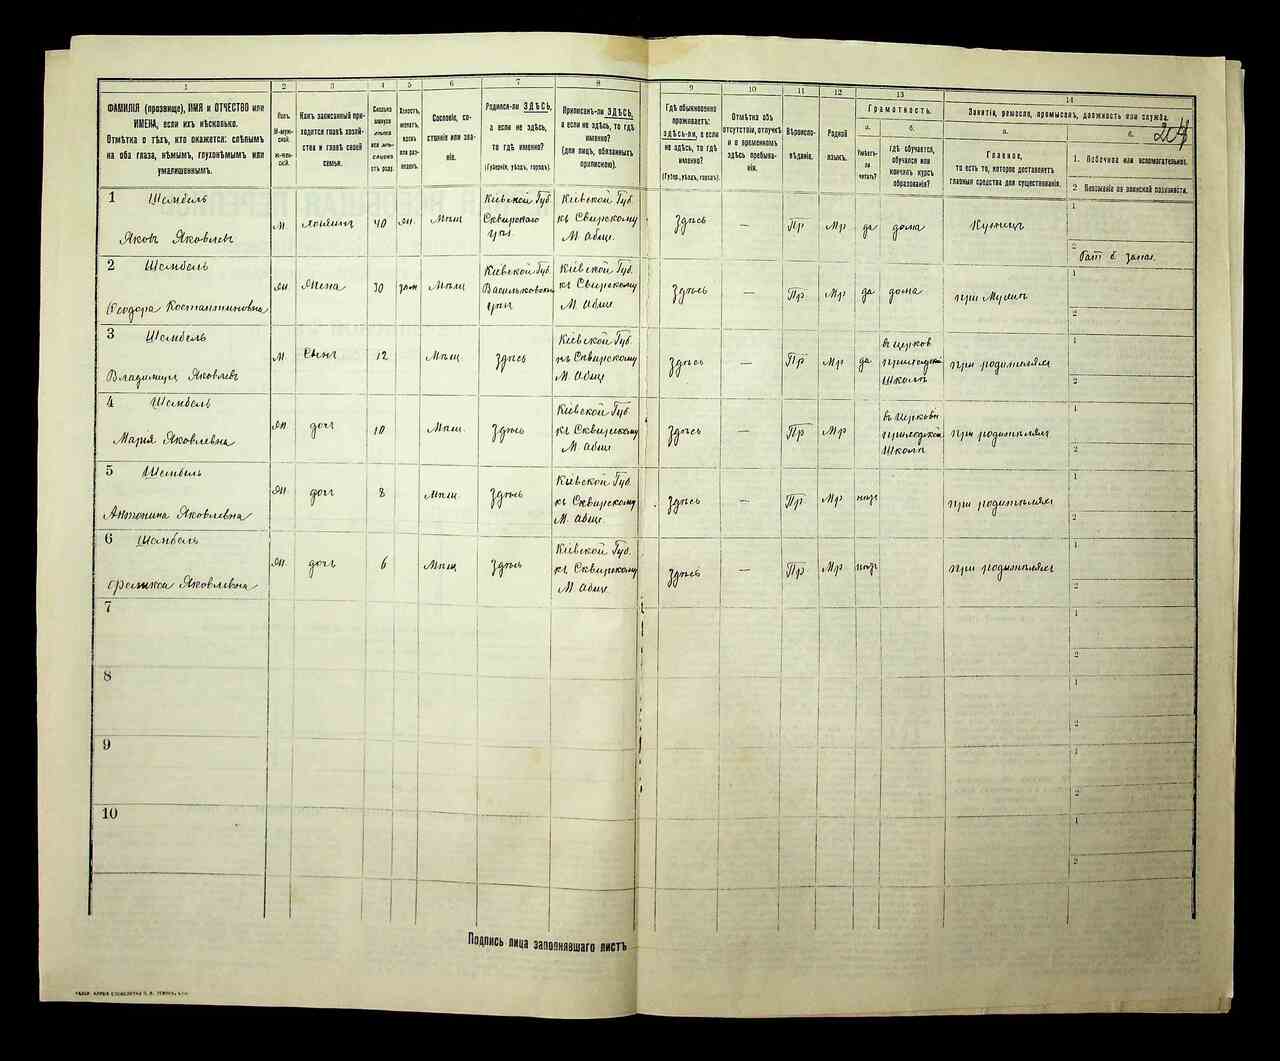 1
2
3
4
5
6
7
8
9
10
11
12
13
14
ФАМИЛІЯ (прозвище), ИМЯ и ОТЧЕСТВО или
ИМЕНА, если ихъ нѣсколько.
Отмѣтка о тѣхъ, кто окажется: слѣпымъ
на оба глаза, нѣмымъ, глухонѣмымъ или
умалишеннымъ.
Полъ.
М-муж-
ской.
Ж-жен-
скій.
Какъ записанный при-
ходится главѣ хозяй-
ства и главѣ своей
семьи.
Сколько
Холостъ,
женатъ,
вдовъ
или раз-
веденъ.
Сословіе, со-
стояніе или зва-
ніе.
Родился-ли ЗДѢСЬ,
а если не здѣсь,
то гдѣ именно?
(Губернія, уѣздъ, городъ).
Приписанъ-ли ЗДѢСЬ,
а если не здѣсь, то гдѣ
именно?
(для лицъ, обязанныхъ
припискою).
Гдѣ обыкновенно
проживаетъ:
здѣсь-ли, а если
не здѣсь, то гдѣ
именно?
(Губер., уѣздъ, городъ).
Отмѣтка объ
отсутствіи, отлучкѣ
и о временномъ
здѣсь пребыва-
ніи.
Вѣроиспо-
вѣданіе.
Родной
языкъ.
Грамотность.
а.
б.
Умѣетъ-
ли
читать?
Гдѣ обучается,
обучался или
кончилъ курсъ
образованія?
Занятіе, ремесло, промыселъ, должность или служба.
а.
б.
Главное,
то есть то, которое доставляетъ
главныя средства для существованія.
1. Побочное или вспомогательное.
2 Положеніе по воинской повинности.
1 Шембель
Яковъ Яковлевъ
м
хозяинъ
40
жн.
Мѣщ
Кіевской Губ.
Сквирскаго
уѣз.
Кіевской Губ.
къ Сквирскому
М Обще.
Здѣсь
—
Пр
Мр
да
дома
Кузнецъ
1
2
Рат б запас.
2 Шембель
Феодора Костантиновна
жн.
Жена
30
зам
Мѣщ
Кіевской Губ.
Васильковскаго
уѣз
Кіевской Губ.
къ Сквирскому
М Обще
Здѣсь
—
Пр
Мр
да
дома
при Мужѣ
1
2
3 Шембель
Владимиръ Яковлевъ
м
Сынъ
12
Мѣщ
здѣсь
Кіевской Губ.
къ Сквирскому
М. Обще
Здѣсь
—
Пр
Мр
да
въ Церков
приходской
Школѣ
при родителяхъ
1
2
4 Шембель
Мария Яковлевна
жн.
доч
10
Мѣщ.
Здѣсь
Кіевской Губ.
къ Сквирскому
М Обще
Здѣсь
—
Пр
Мр
въ Церковн
приходской
Школѣ
при родителях
1
2
5 Шембель
Антонина Яковлевна
жн.
доч
8
Мѣщ
Здѣсь
Кіевской Губ.
къ Сквирскому
М. Обще.
Здѣсь
—
Пр
Мр
при родителях
1
2
6 Шембель
Яковлевна
жн.
доч
6
Мѣщ
Здѣсь
Кіевской Губ.
къ Сквирскому
М Обще.
Здѣсь
—
Пр
Мр
при родителях
1
2
7
1
2
8
1
2
9
1
2
10
1
2
Подпись лица заполнявшаго листъ